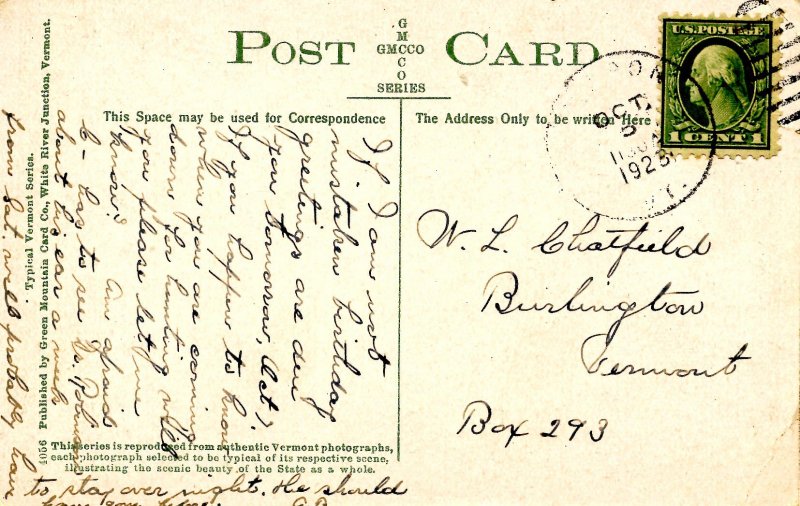 POST CARD
GMCCO
GMCCO
SERIES
This Space may be used for Correspondence
The Address Only to be written Here
U.S. POSTAGE
1 CENT 1
OCT
1923
VT.
If I am not
mistaken birthday
greetings are due
you tomorrow, Oct 1,
If you happen to know
when you are coming
down for hunting will
you please let me
know? Am afraid
has to see Dr.
about his ear a week
from Sat. will probably have
to stay over night. He should
have gone before.
W. L. Chatfield
Burlington
Vermont
Box 293
Typical Vermont Series.
4056 Published by Green Mountain Card Co., White River Junction, Vermont.
This series is reproduced from authentic Vermont photographs,
each photograph selected to be typical of its respective scene,
illustrating the scenic beauty of the State as a whole.